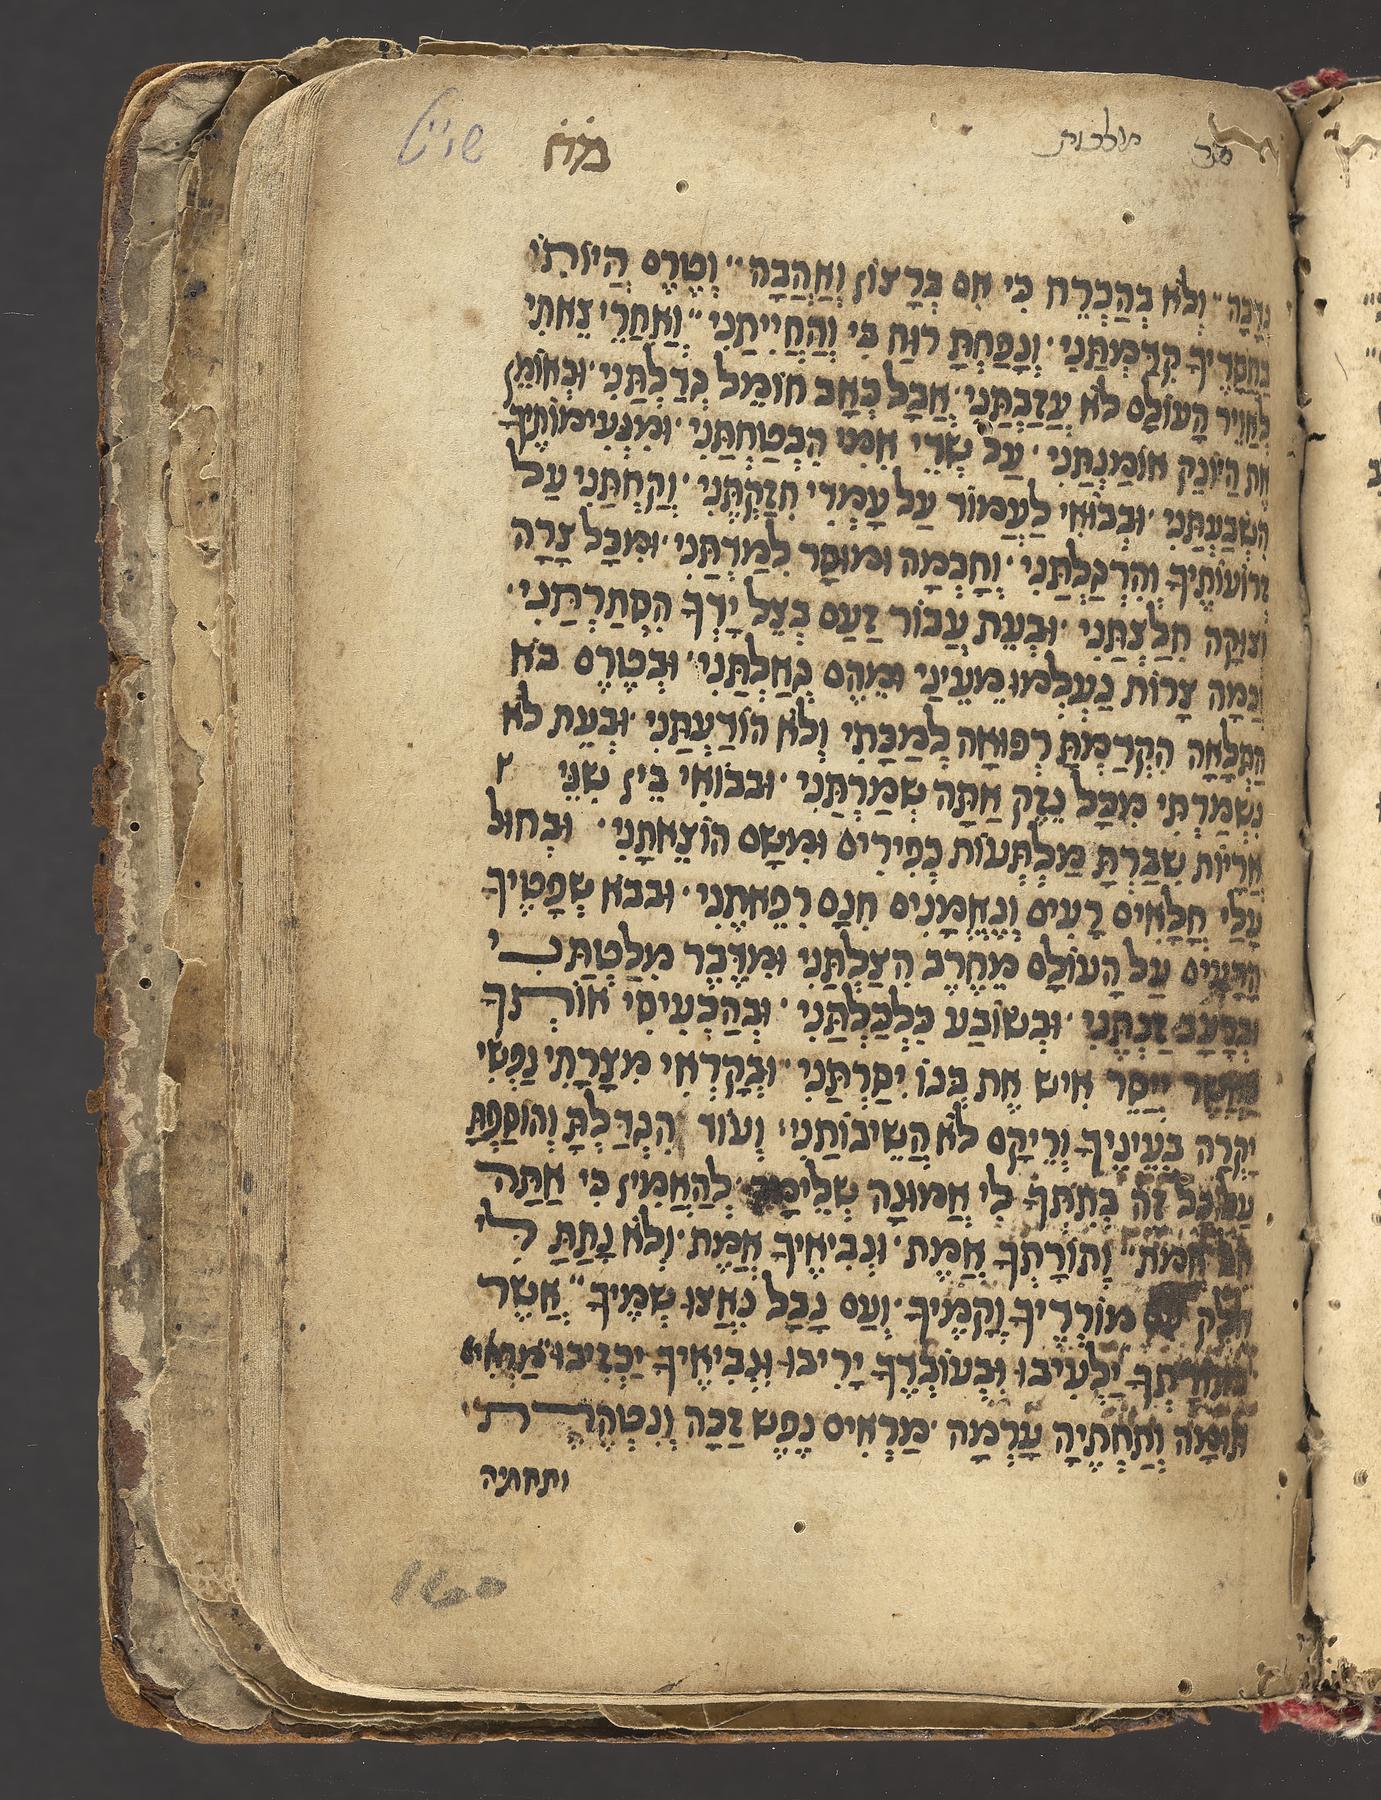 מח שי"ט
נדבה״ ולא בהכרח כי אם ברצון ואהבה״ וטרם היותי
בחסדיך קדמתני· ונפחת רוח בי והחייתני״ ואחרי צאתי
לאויר העולם לא עזבתני· אבל כאב חומל גדלתני· וכאומן
את היונק אומנתני· על שדי אמי הבטחתני· ומנעימותיך
השבעתני· ובבואי לעמוד על עמדי חזקתני· וקחתני על
זרועותיך והרגלתני· וחכמה ומוסר למדתני· ומכל צרה
וצוקה חלצתני· ובעת עבור זעם בצל ידך הסתרתני·
וכמה צרות נעלמו מעיני ומהם גאלתני· ובטרם בא
התלאה הקדמת רפואה למכתי ולא הודעתני· ובעת לא
נשמרתי מכל נזק אתה שמרתני· ובבואי בין שני
אריות שברת מלתעות כפירים ומשם הוצאתני· ובחול
עלי חלאים רעים ונאמנים חנם רפאתני· ובבא שפטיך
הרעים על העולם מחרב הצלתני ומדבר מלטתני
וברעב זנתני· ובשובע כלכלתני· ובהכעיסי אותך
כאשר ייסר איש את בנו יסרתני״ ובקראי מצרתי נפשי
יקרה בעיניך וריקם לא השיבותני· ועוד הגדלת והוספת
על כל זה בתתך לי אמונה שלימה להאמין כי אתה
אל אמת״ ותורתך אמת· ונביאיך אמת· ולא נתת לי
חלק עם מורדיך וקמיך· ועם נבל נאצו שמיך״ אשר
בתורתך ילעיבו ובעובדך יריבו ונביאיך יכזיבו מראים
תומה ותחתיה ערמה· מראים נפש זכה ונטהרת
ותחתיה